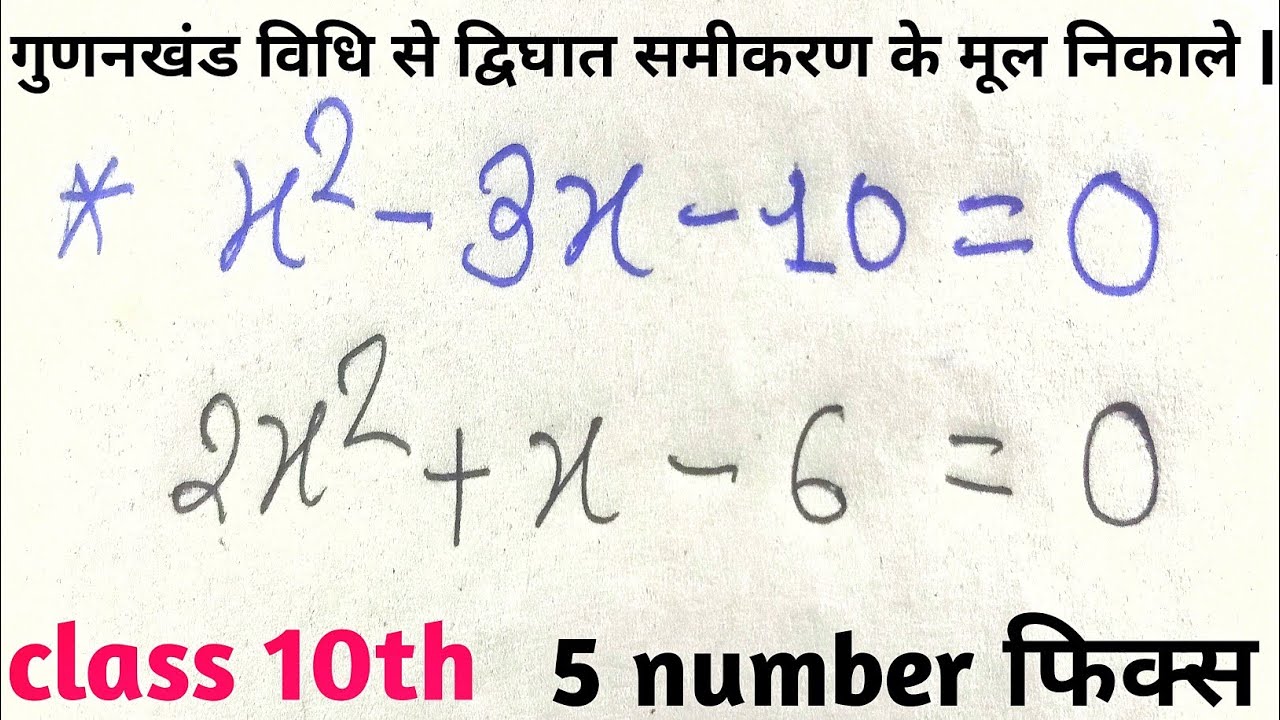 गुणनखंड विधि से द्विघात समीकरण के मूल निकाले |
* x² - 3x - 10 = 0
2x² + x - 6 = 0
class 10th 5 number फिक्स